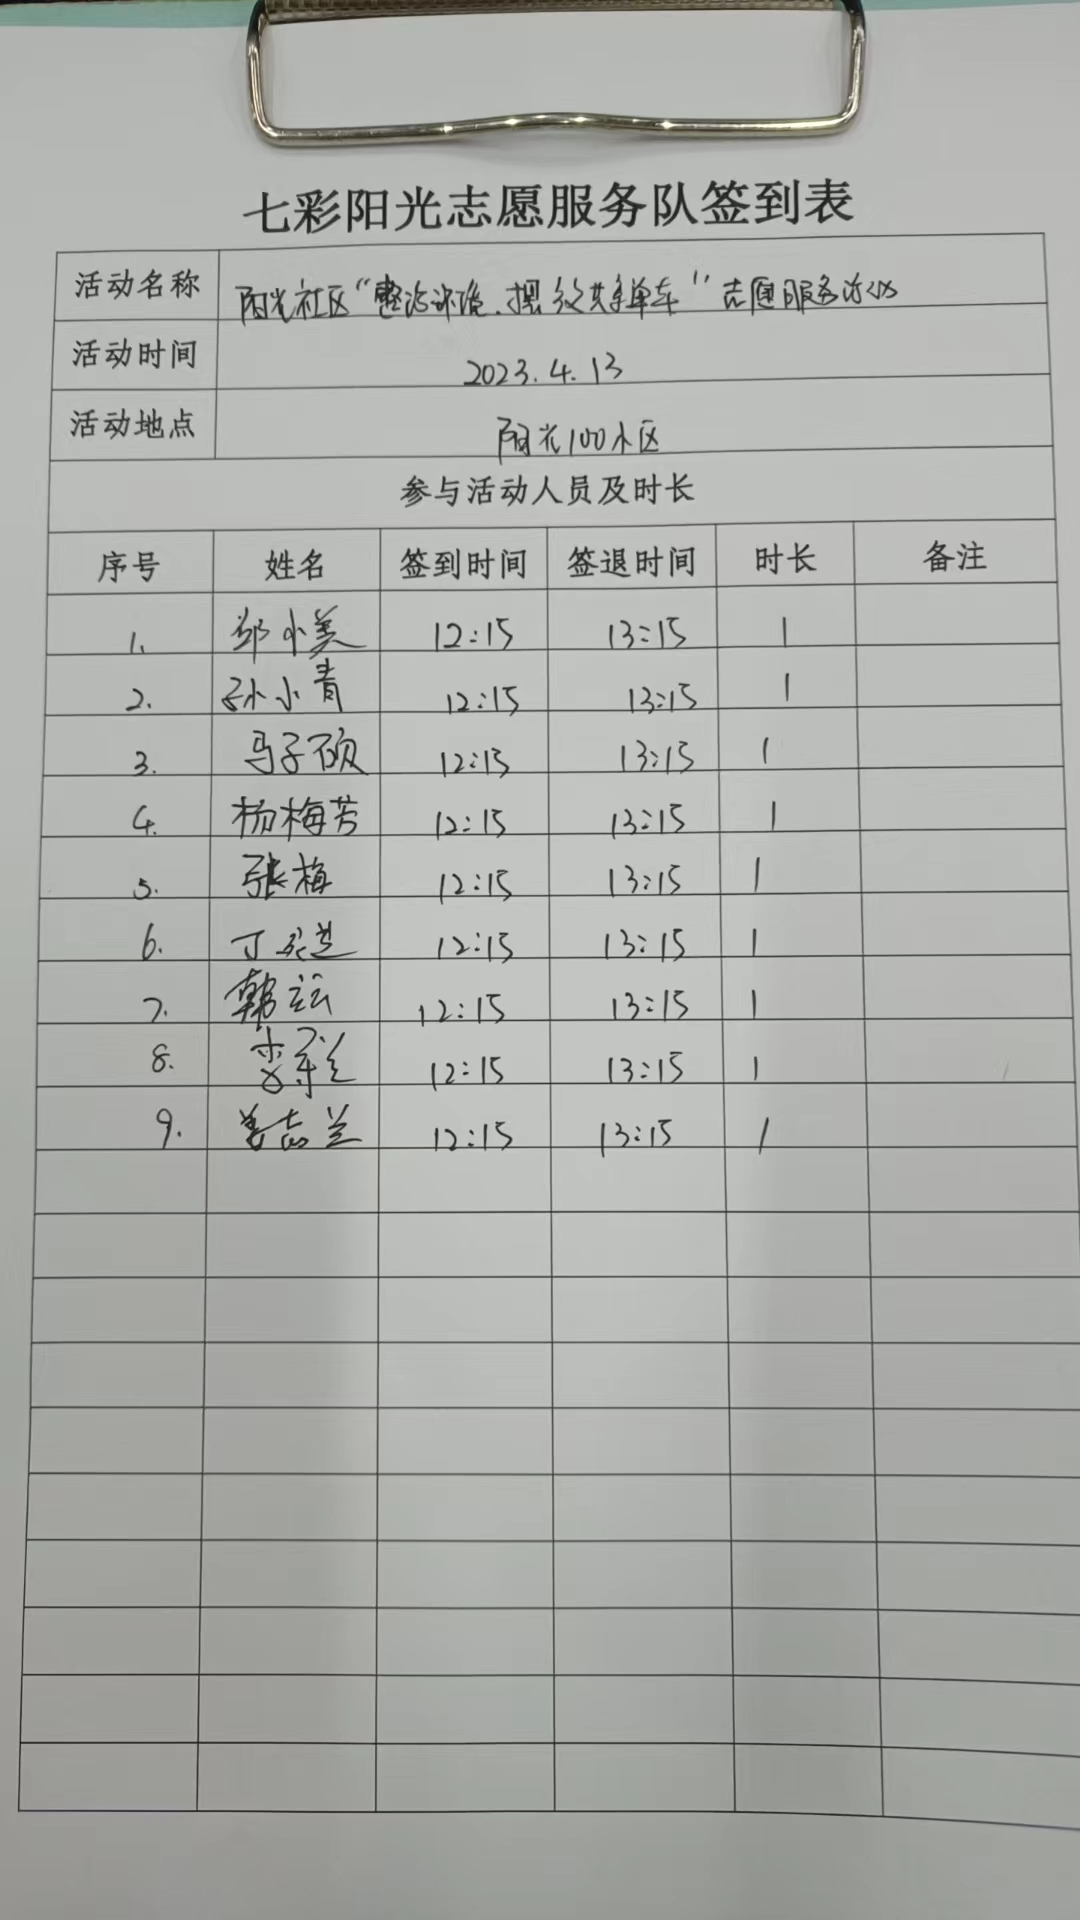 七彩阳光志愿服务队签到表
活动名称 阳光社区“整治环境、摆放共享单车”志愿服务活动
活动时间 2023.4.13
活动地点 阳光100小区
参与活动人员及时长
序号 姓名 签到时间 签退时间 时长 备注
1. 邹小美 12:15 13:15 1
2. 孙小青 12:15 13:15 1
3. 马子硕 12:15 13:15 1
4. 杨梅芳 12:15 13:15 1
5. 张梅 12:15 13:15 1
6. 丁 12:15 13:15 1
7. 韩云 12:15 13:15 1
8. 李 12:15 13:15 1
9. 姜志兰 12:15 13:15 1